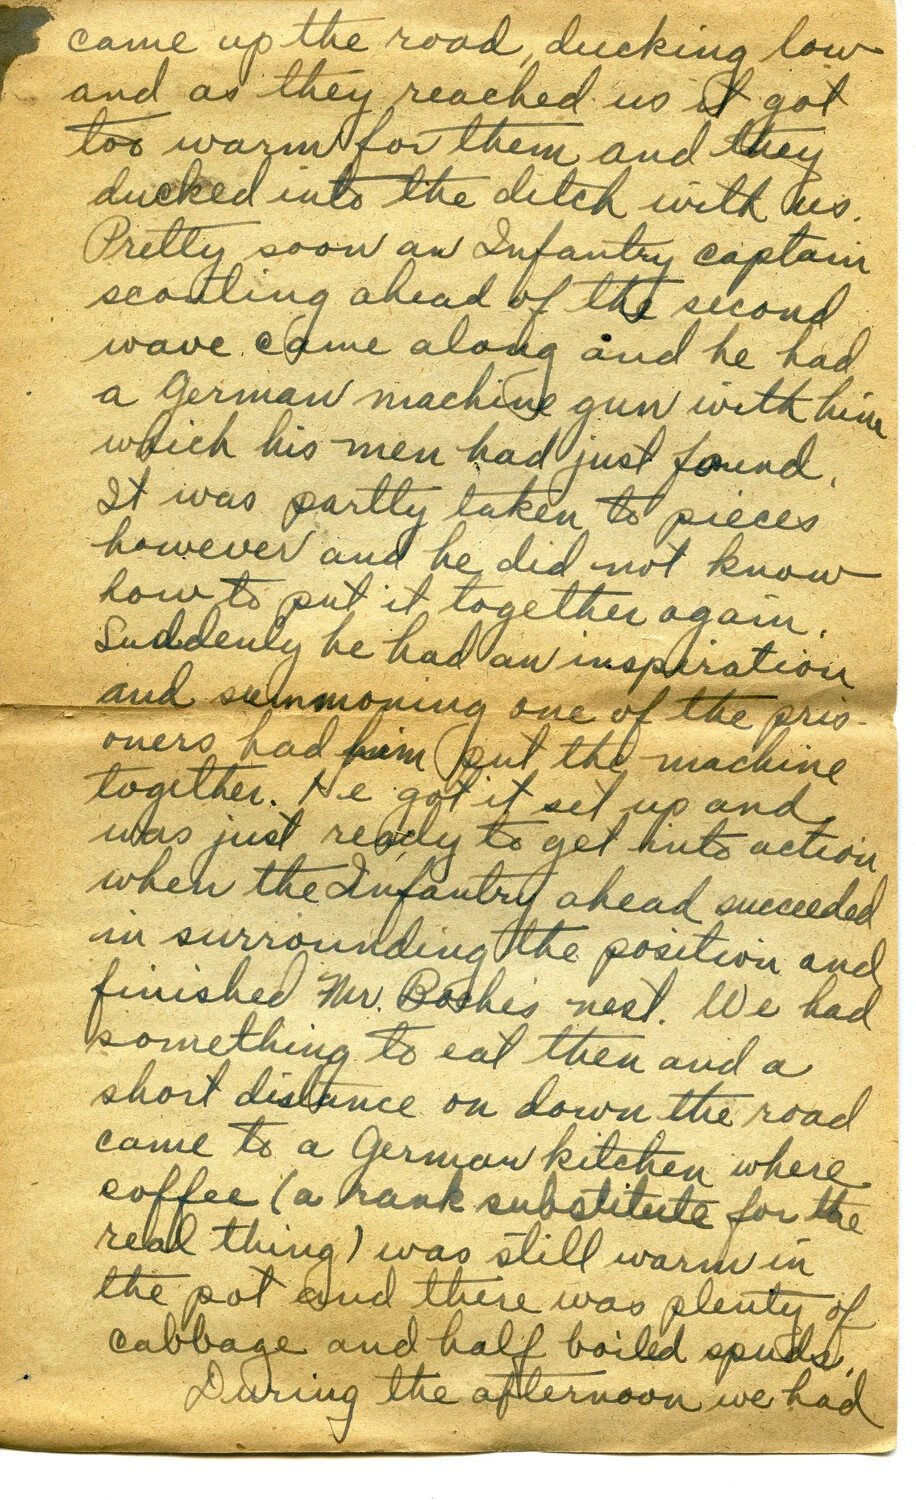 came up the road, ducking low
and as they reached us it got
too warm for them and they
ducked into the ditch with us.
Pretty soon an Infantry captain
scouting ahead of the second
wave came along and he had
a German machine gun with him
which his men had just found.
It was partly taken to pieces
however and he did not know
how to put it together again.
Suddenly he had an inspiration
and summoning one of the pris-
oners had him put the machine
together. He got it set up and
was just ready to get into action
when the Infantry ahead succeeded
in surrounding the position and
finished Mr. Boshe's nest. We had
something to eat then and a
short distance on down the road
came to a German kitchen where
coffee (a rank substitute for the
real thing) was still warm in
the pot and there was plenty of
cabbage and half boiled spuds.
During the afternoon we had